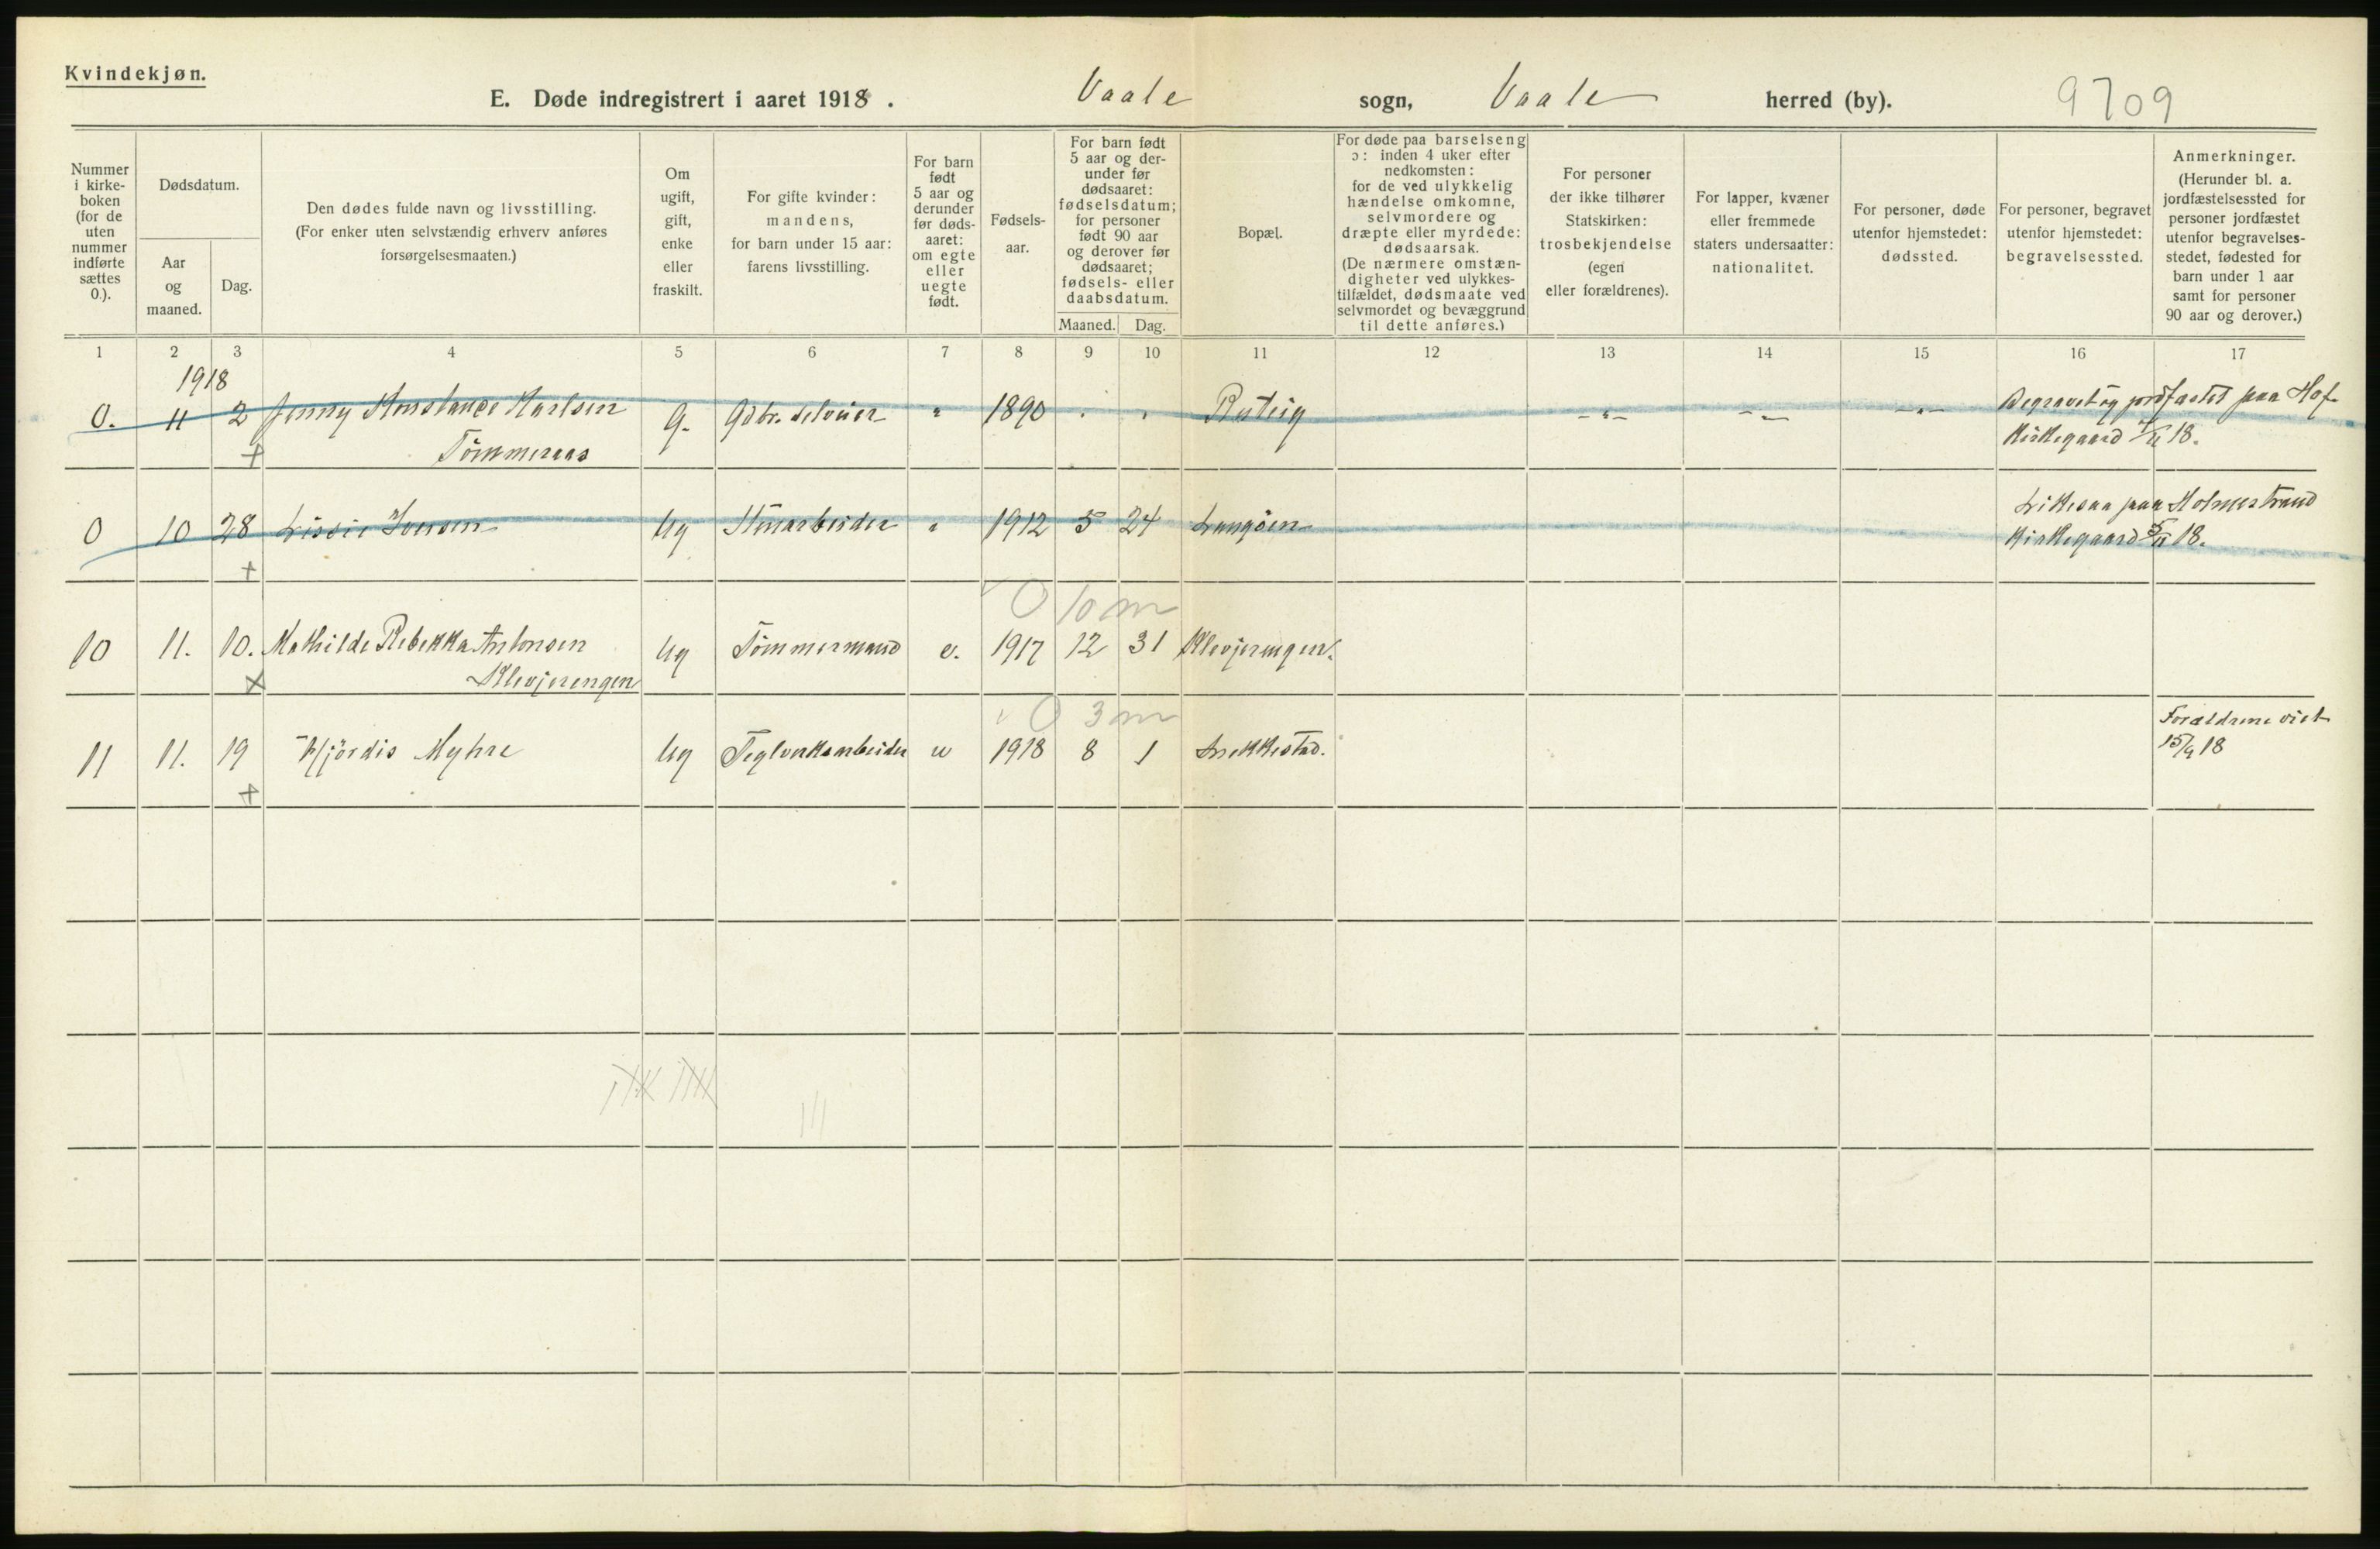 Kvindekjøn.
E. Døde indregistrert i aaret 1918. Vaale sogn, Vaale herred (by). 9709
Nummer i kirkeboken (for de uten nummer indførte sættes 0.).
Dødsdatum.
Aar og maaned.
Dag.
Den dødes fulde navn og livsstilling.
(For enker uten selvstændig erhverv anføres forsørgelsesmaaten.)
Om ugift, gift, enke eller fraskilt.
For gifte kvinder: mandens, for barn under 15 aar: farens livsstilling.
For barn født 5 aar og derunder før dødsaaret: om egte eller uegte født.
Fødselsaar.
For barn født 5 aar og derunder før dødsaaret: fødselsdatum; for personer født 90 aar og derover før dødsaaret; fødsels- eller daabsdatum.
Maaned. Dag.
Bopæl.
For døde paa barselseng ɔ: inden 4 uker efter nedkomsten: for de ved ulykkelig hændelse omkomne, selvmordere og dræpte eller myrdede: dødsaarsak. (De nærmere omstændigheter ved ulykkestilfældet, dødsmaate ved selvmordet og bevæggrund til dette anføres.)
For personer der ikke tilhører Statskirken: trosbekjendelse (egen eller forældrenes).
For lapper, kvæner eller fremmede staters undersaatter: nationalitet.
For personer, døde utenfor hjemstedet: dødssted.
For personer, begravet utenfor hjemstedet: begravelsessted.
Anmerkninger. (Herunder bl. a. jordfæstelsessted for personer jordfæstet utenfor begravelsesstedet, fødested for barn under 1 aar samt for personer 90 aar og derover.)
1 2 3 4 5 6 7 8 9 10 11 12 13 14 15 16 17
1918
0. 11 2 Jenny Konstance Karlsen g. Gdbr. 1890 -"- -"- -"- Begravet og jordfæstet paa Hof
+ Tömmeraas Kirkegaard 18.
0 10 28 Lissie Iversen Ug Stenarbeider " 1912 5 24 Langöen paa Holmestrand
+ Kirkegaard 5/11 18.
0 10 m
10 11. 10. Mathilde Rebekka Antonsen Ug Tömmermand e. 1917 12 31 Klevjerengen.
x Klevjerengen
0 3 m
11 11. 19 Hjördis Myhre Ug Teglverksarbeider u 1918 8 1 Snekkestad. Forældrene viet
+ 15/9 18